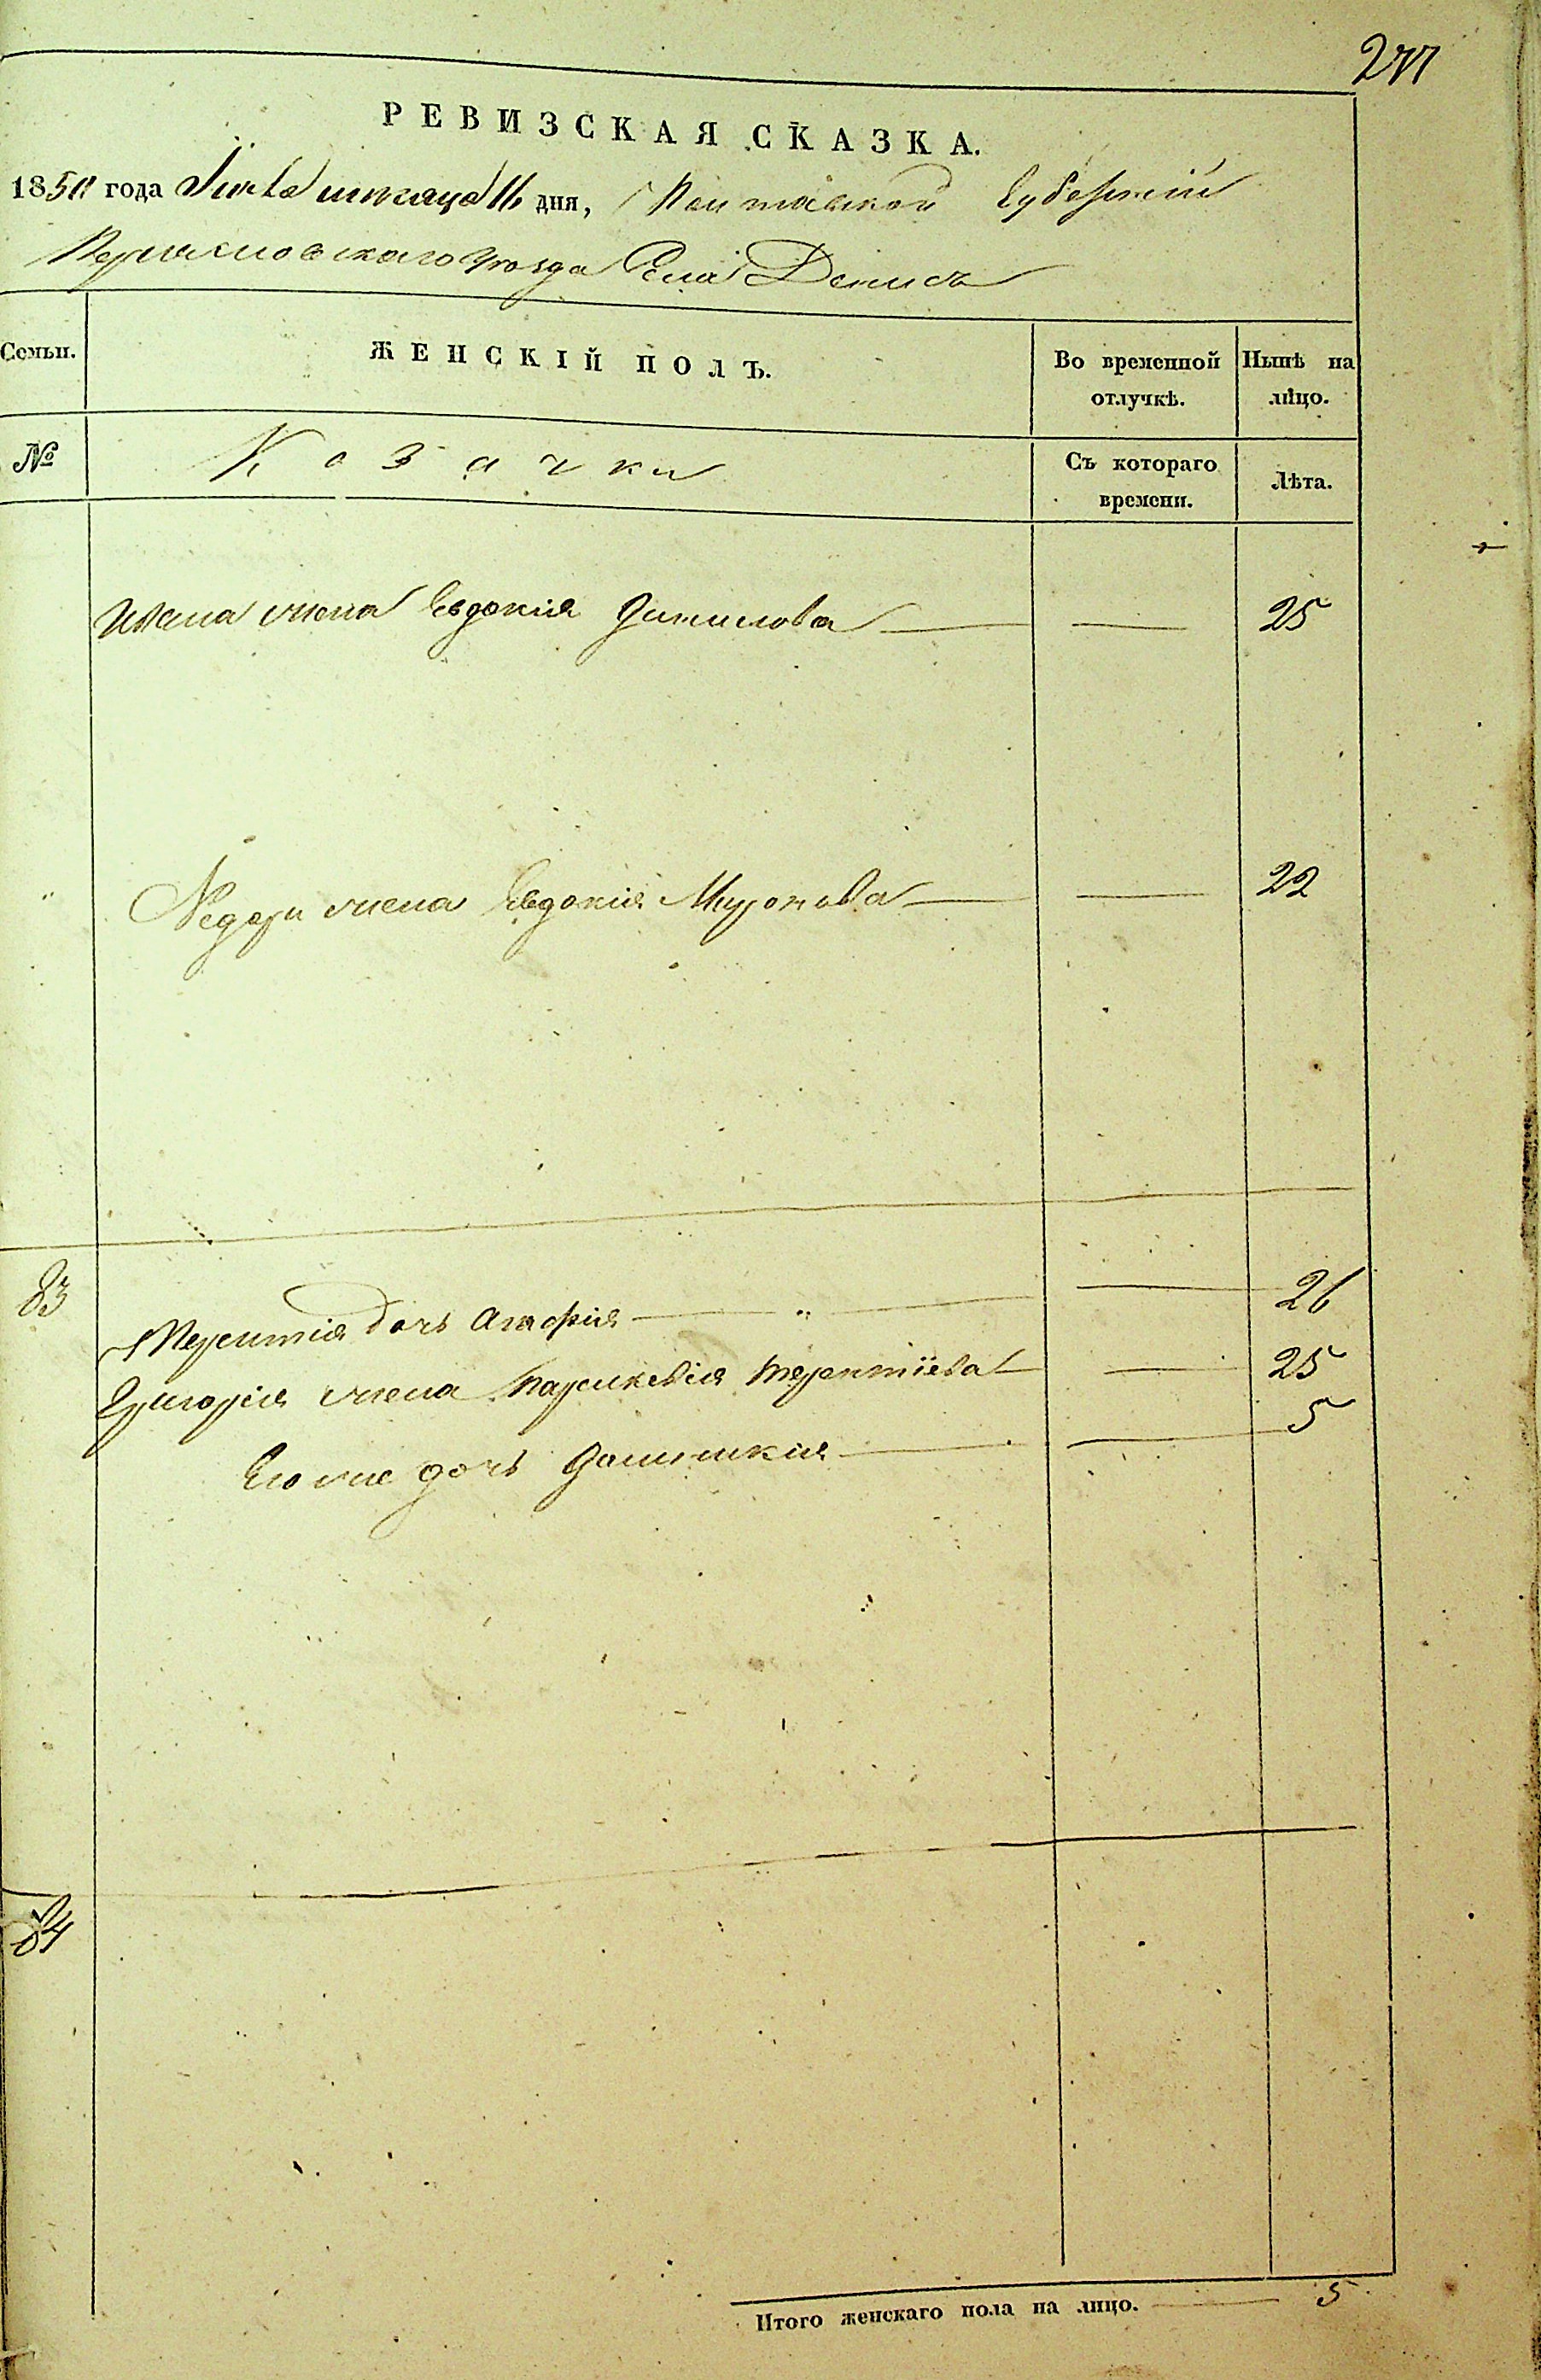 271
РЕВИЗСКАЯ СКАЗКА.
1850 года месяца 11 дня, Полтавской Губерніи
уезда Села Денисъ
Семьи.
ЖЕНСКІЙ ПОЛЪ.
Во временной отлучкѣ.
Нынѣ на лицо.
№
Козачки
Съ котораго времени.
Лѣта.
Ивана жена Евдокія Данилова — — 25
Федора жена Евдокія Миронова — — 22
83
Терентія дочь Агафія — " — — 26
Григорія жена Параскевія Терентіева — — 25
Его же дочь Домникія — — 5
84
Итого женскаго пола на лицо. — 5